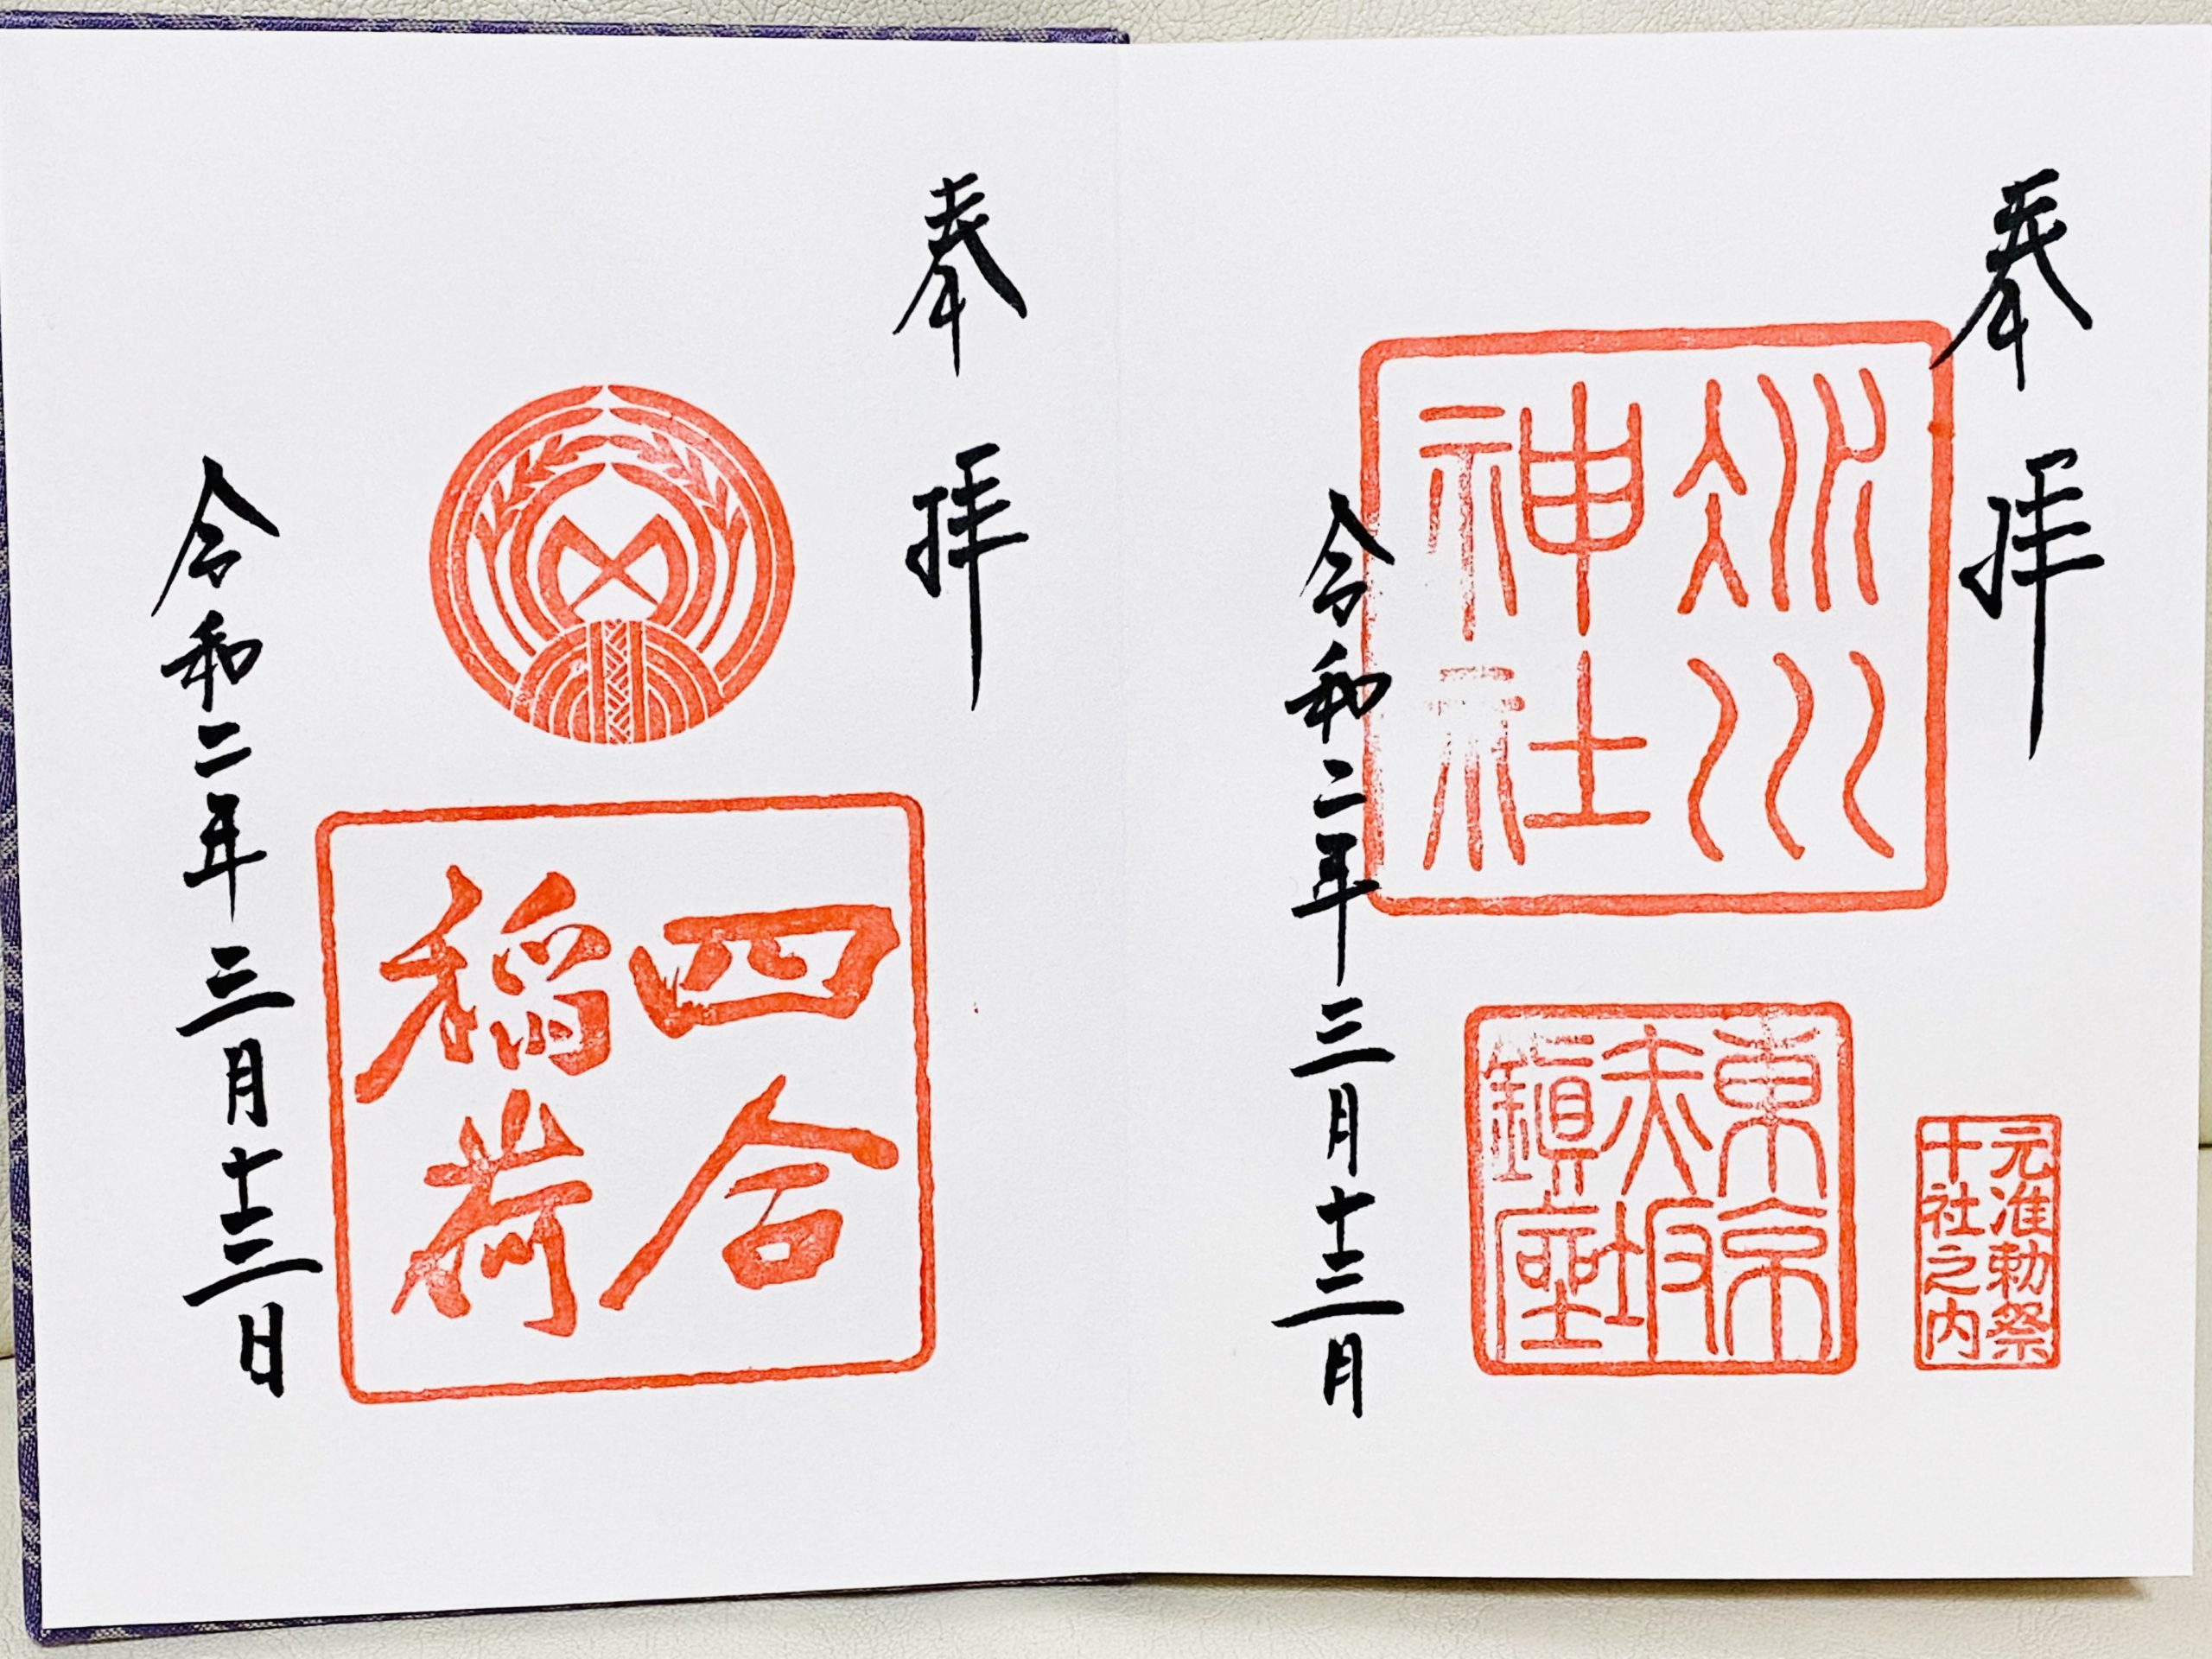 奉拝
冰川
神社
東京
赤坂
鎭座
元准勅祭
十社之内
令和二年三月十三日
奉拝
四合
稲荷
令和二年三月十三日